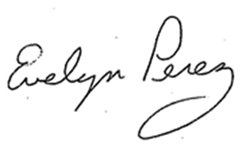 Evelyn Perez